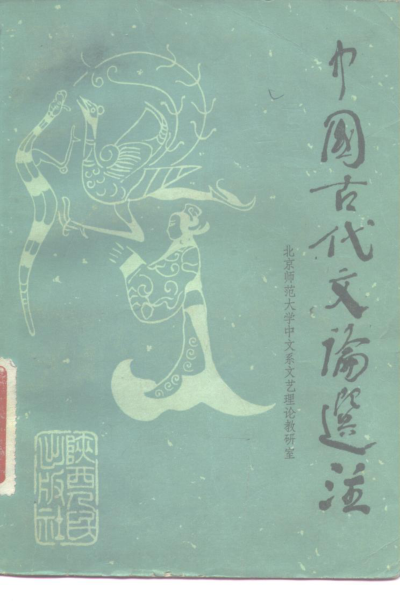 中國古代文論選注
北京师范大学中文系文艺理论教研室
陝西人民
出版社